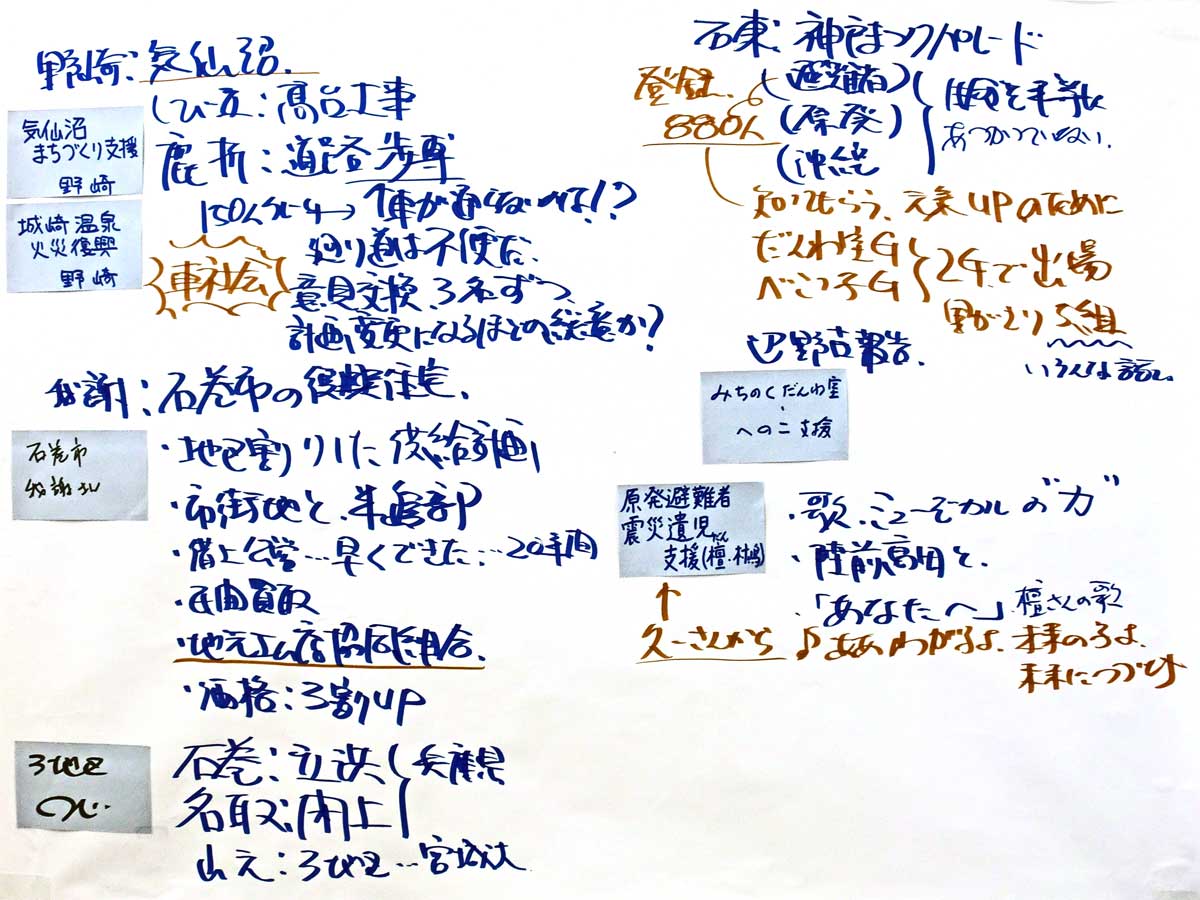 野崎：気仙沼.
しび立：高台工事
鹿折：道路歩専
150人スクール→「車が通らないのは!?
廻り道は不便だ.
車社会
意見交換、3名ずつ
計画変更になるほどの総意か?
気仙沼
まちづくり支援
野崎
城崎温泉
火災復興
野崎
石巻市の復興住宅.
石巻市
・地区割りした供給計画
・市街地と、半島部
・借上公営…早くできた…20年間
・民間買取
・地元工務店協同組合.
・価格：3割UP
3地区
つじ
石巻：立浜
名取：閖上
兵庫県
山元：3地区…宮城大
石東：神戸まつりパレード
登録
880人
(避難者)
(原発)
(沖縄
あつかっていない.
知ってもらう、元気UPのために
だんわ室G
べこっ子G
2Gで出場
里がえり5組
いろんな話し
辺野古報告.
みちのくだんわ室
・
へのこ支援
原発避難者
震災遺児さん
支援(檀・村嶋)
・歌、ミュージカルの"力"
・陸前高田と.
・「あなたへ」檀さんの歌
↑
久一さんから
♪ああわかるよ.未来の子よ
未来につづけ